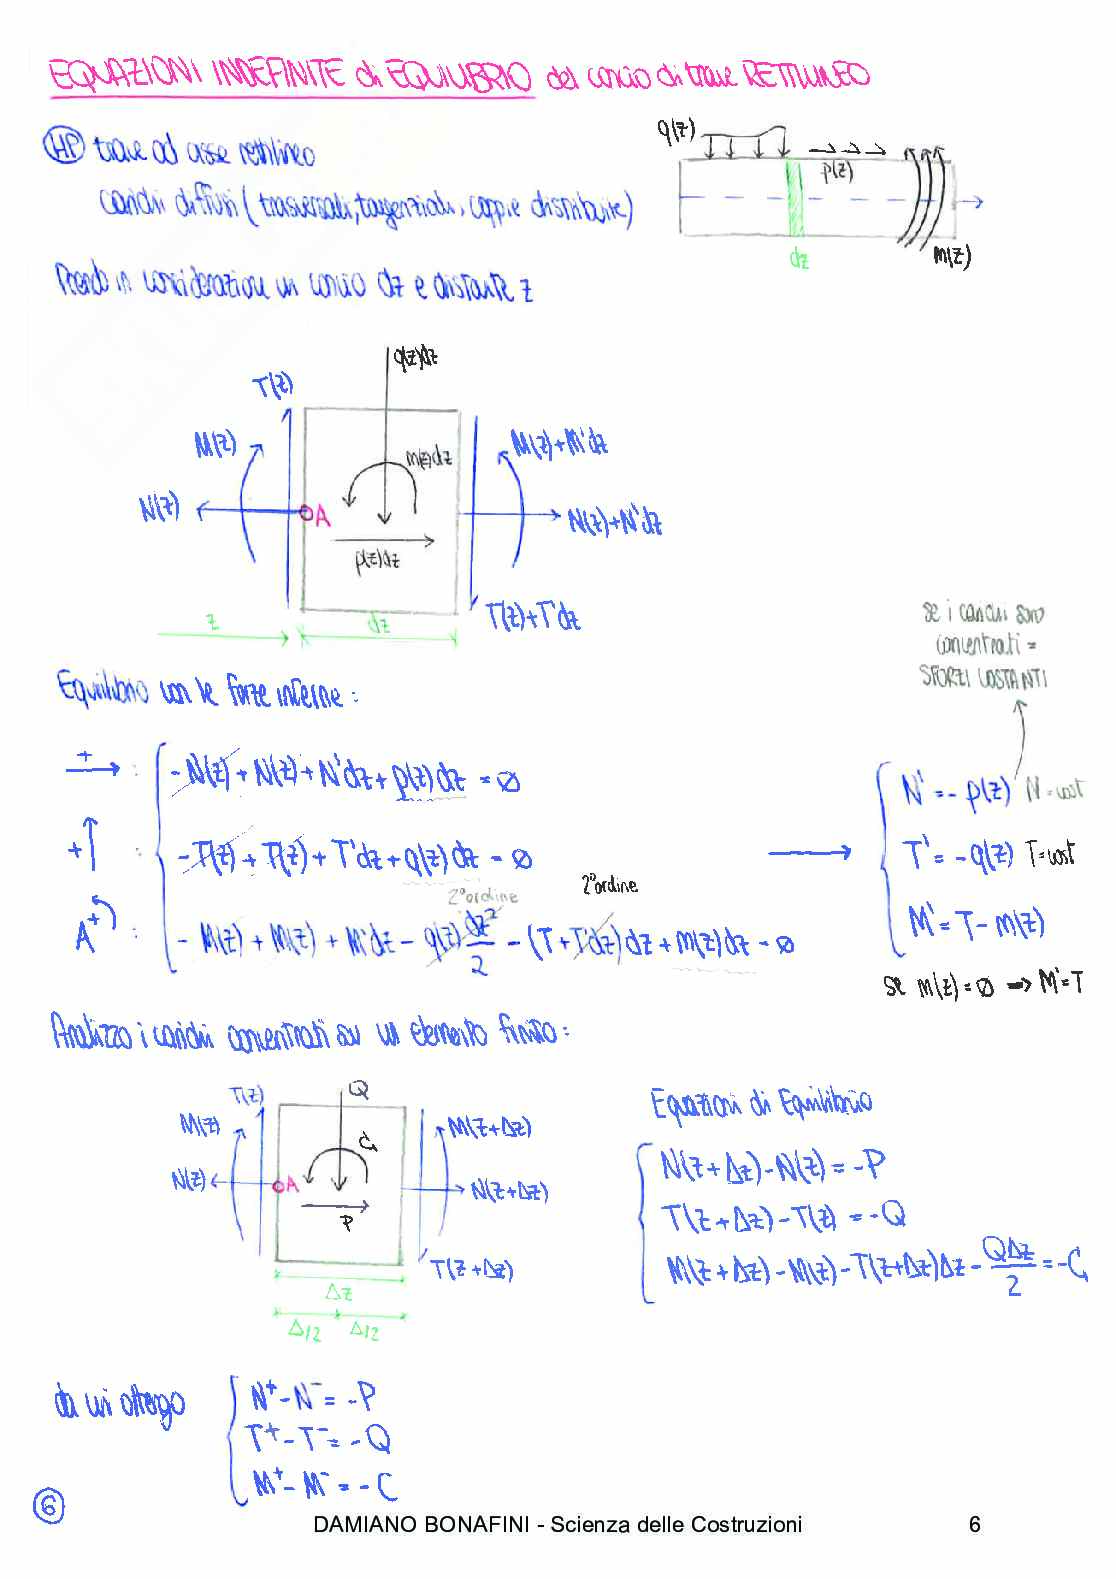 EQUAZIONI INDEFINITE di EQUILIBRIO del concio di trave RETTILINEO
HP trave ad asse rettilineo
carichi diffusi (trasversali, tangenziali, coppie distribuite)
q(z)
p(z)
m(z)
dz
Prendo in considerazione un concio dz e distante z
q(z)dz
T(z)
M(z)
m(z)dz
M(z)+M'dz
N(z)
A
N(z)+N'dz
p(z)dz
T(z)+T'dz
z
dz
se i carichi sono
concentrati =
SFORZI COSTANTI
Equilibrio con le forze interne:
+ : -N(z) + N(z) + N'dz + p(z)dz = ∅
N' = - p(z) N = cost
+ : -T(z) + T(z) + T'dz + q(z)dz = ∅
T' = - q(z) T = cost
2°ordine
2°ordine
A+ : - M(z) + M(z) + M'dz - q(z) dz²/2 - (T + T'dz)dz + m(z)dz = ∅
M' = T - m(z)
se m(z) = ∅ → M' = T
Analizzo i carichi concentrati su un elemento finito:
T(z)
Q
M(z)
C
M(z+Δz)
N(z)
A
N(z+Δz)
P
T(z+Δz)
Δz
Δ/2 Δ/2
Equazioni di Equilibrio
N(z+Δz) - N(z) = -P
T(z+Δz) - T(z) = -Q
M(z+Δz) - M(z) - T(z+Δz)Δz - QΔz/2 = -C
da cui ottengo
N⁺ - N⁻ = -P
T⁺ - T⁻ = -Q
M⁺ - M⁻ = -C
6
DAMIANO BONAFINI - Scienza delle Costruzioni 6